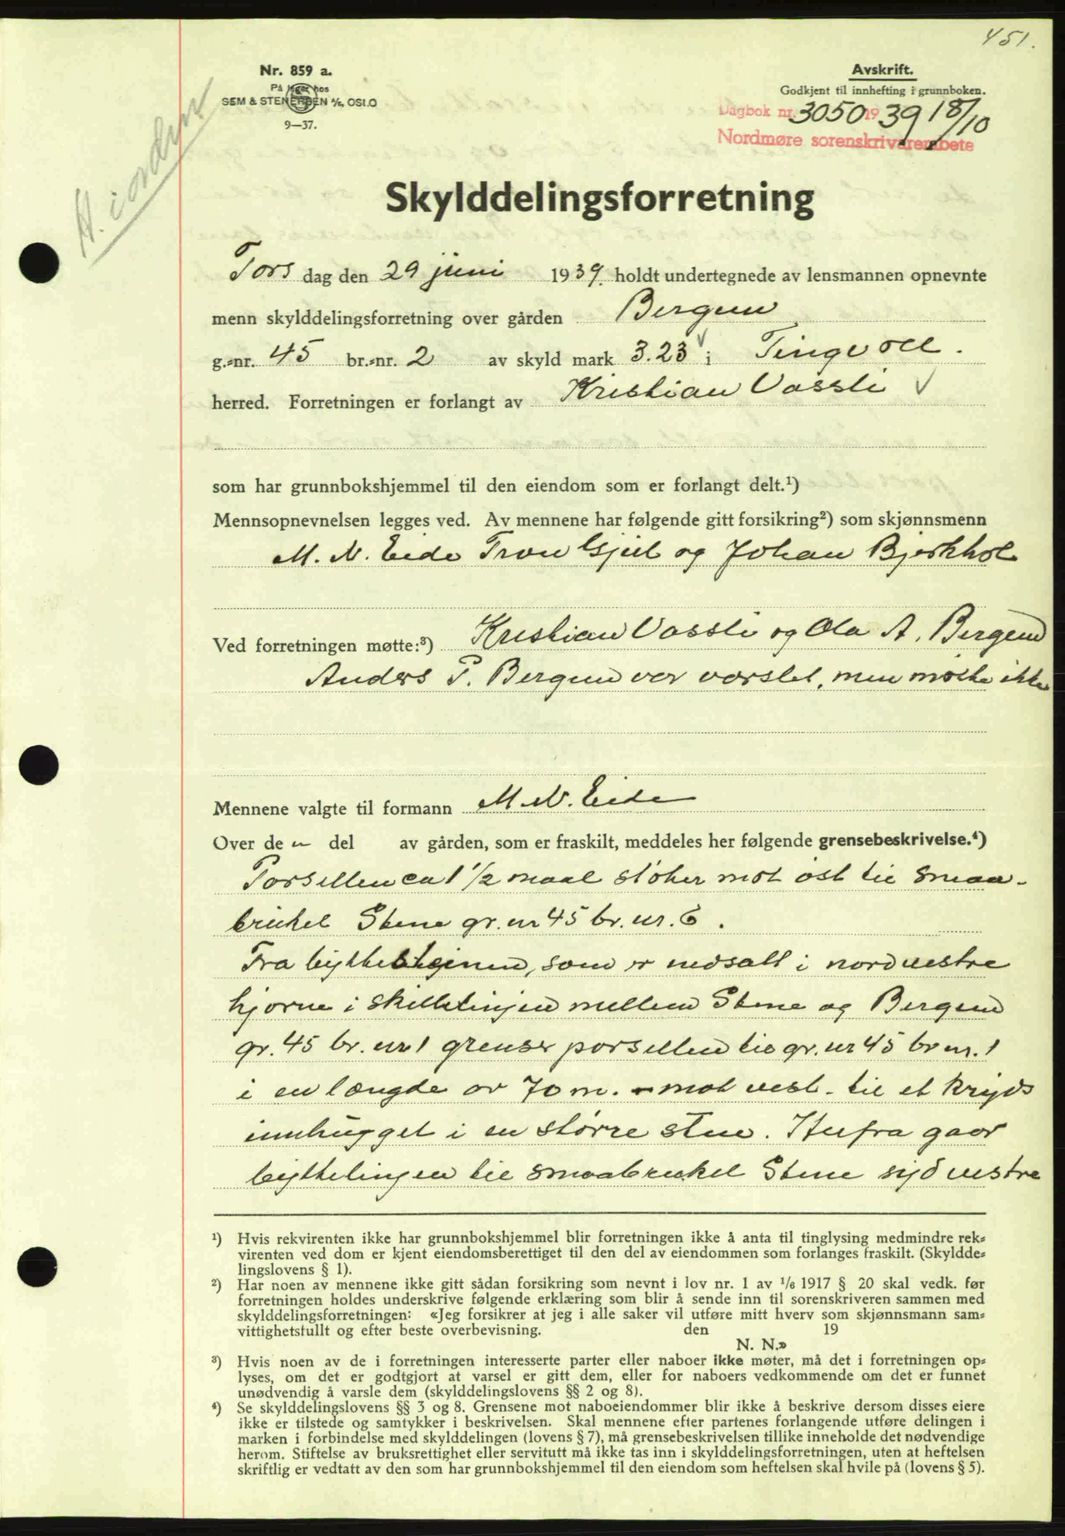 451.
Nr. 859 a.
På lager hos
SEM & STENERSEN A/S, OSLO
9—37.
Avskrift.
Godkjent til innhefting i grunnboken.
Dagbok nr. 3050 19 39 18/10
Nordmøre sorenskriverembete
H. i orden
Skylddelingsforretning
Tors dag den 29 juni 1939. holdt undertegnede av lensmannen opnevnte
menn skylddelingsforretning over gården Bergem
g.-nr. 45 br.-nr. 2 av skyld mark 3.23 i Tingvoll.
herred. Forretningen er forlangt av Kristian Vassli
som har grunnbokshjemmel til den eiendom som er forlangt delt.¹)
Mennsopnevnelsen legges ved. Av mennene har følgende gitt forsikring²) som skjønnsmenn
M. N. Eide Tron Gjul og Johan Bjerkhol
Ved forretningen møtte:³) Kristian Vassli og Ola A. Bergem
Anders P. Bergem var varslet, men møtte ikke
Mennene valgte til formann M. N. Eide
Over de n del av gården, som er fraskilt, meddeles her følgende grensebeskrivelse.⁴)
Porsellen ca 1 1/2 maal støter mot øst til smaa-
bruket Stene gr. nr 45 br. nr. 6.
Fra byttesteinen, som er nedsatt i nordvestre
hjørne i skillelinjen mellem Stene og Bergem
gr. 45 br. nr 1 grenser porsellen til gr. nr 45 br nr. 1
i en længde av 70 m. mot vest. til et kryds
innhugget i en større sten. Herfra gaar
byttelinjen til smaabruket Stene sydvestre
¹) Hvis rekvirenten ikke har grunnbokshjemmel blir forretningen ikke å anta til tinglysing medmindre rek-
virenten ved dom er kjent eiendomsberettiget til den del av eiendommen som forlanges fraskilt. (Skyldde-
lingslovens § 1).
²) Har noen av mennene ikke gitt sådan forsikring som nevnt i lov nr. 1 av 1/6 1917 § 20 skal vedk. før
forretningen holdes underskrive følgende erklæring som blir å sende inn til sorenskriveren sammen med
skylddelingsforretningen: «Jeg forsikrer at jeg i alle saker vil utføre mitt hverv som skjønnsmann sam-
vittighetsfullt og efter beste overbevisning. den 19
N. N.»
³) Hvis noen av de i forretningen interesserte parter eller naboer ikke møter, må det i forretningen op-
lyses, om det er godtgjort at varsel er gitt dem, eller for naboers vedkommende om det er funnet
unødvendig å varsle dem (skylddelingslovens §§ 2 og 8).
⁴) Se skylddelingslovens §§ 3 og 8. Grensene mot naboeiendommer blir ikke å beskrive dersom disses eiere
ikke er tilstede og samtykker i beskrivelsen. Skal mennene efter partenes forlangende utføre delingen i
marken i forbindelse med skylddelingen (lovens § 7), må grensebeskrivelsen tillike inneholde det nødvendige
herom. Stiftelse av bruksrettighet eller servitutt må ikke tas inn i skylddelingsforretningen, uten at heftelsen
skriftlig er vedtatt av den som har grunnbokshjemmel til den eiendom som heftelsen skal hvile på (lovens § 5).